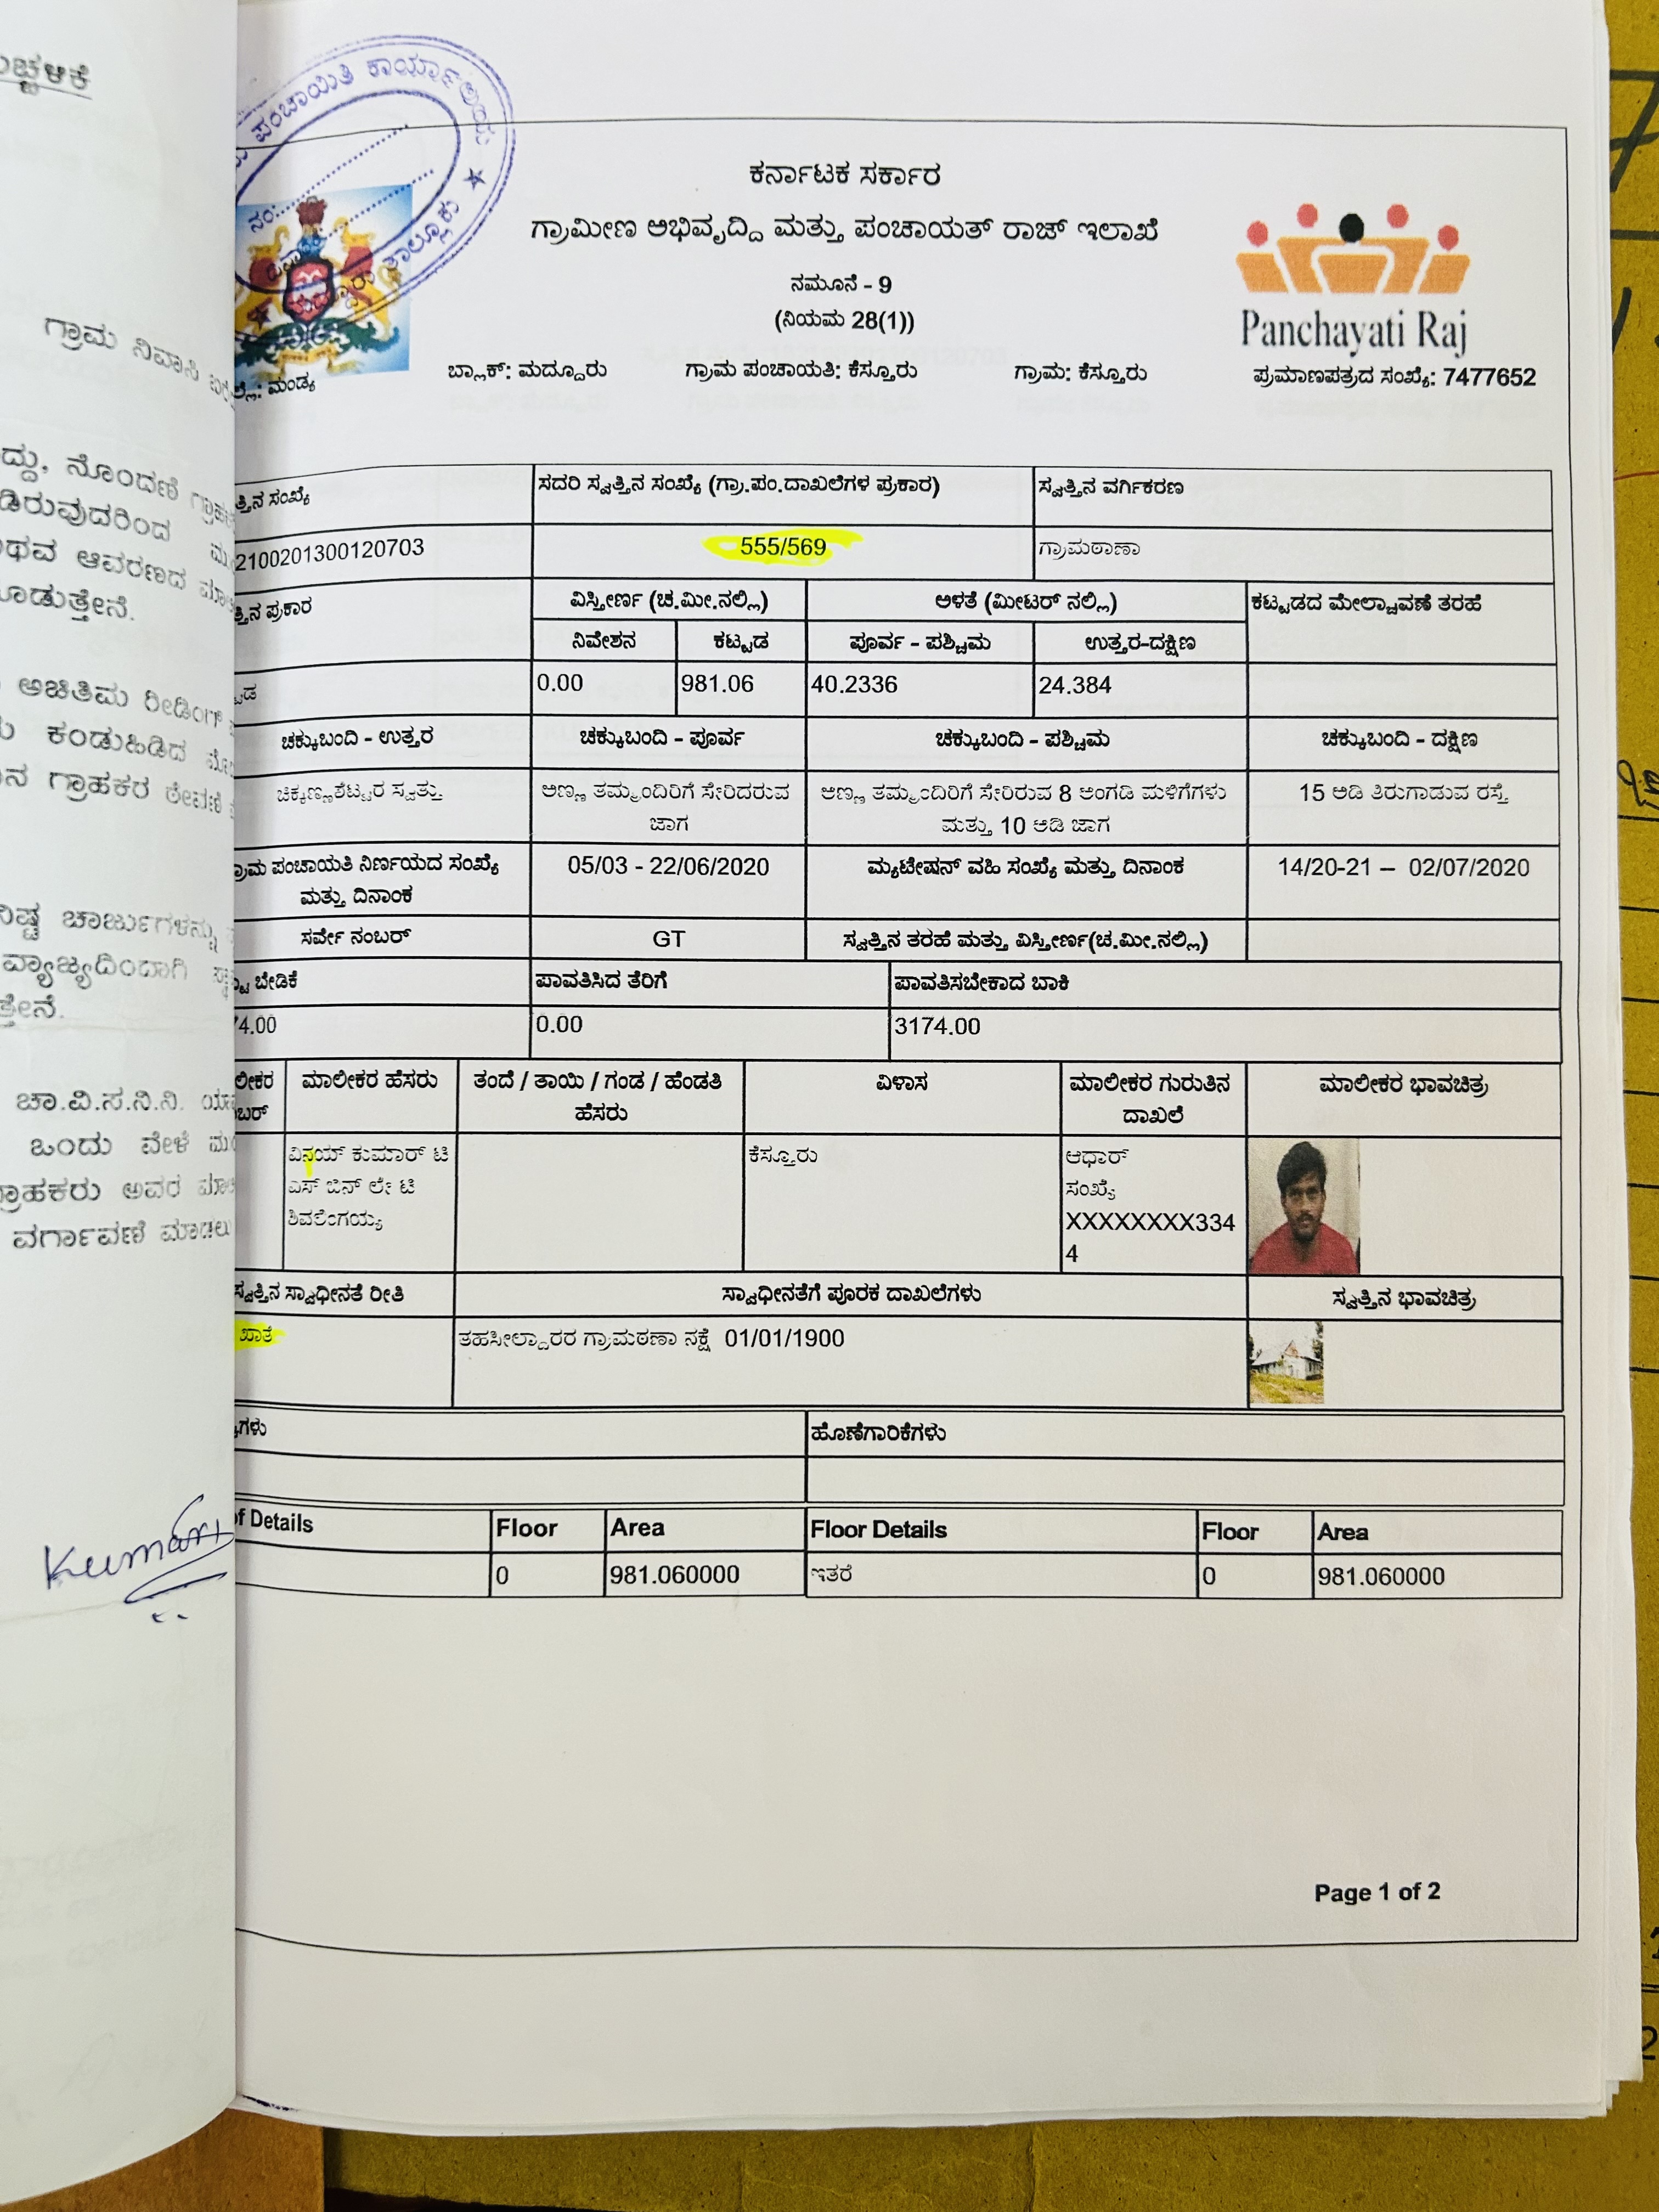 ಗ್ರಾಮ ನಿವಾಸಿ
ನೊಂದಣಿ
ಆವರಣದ
ಅಚಿತಿಮ ರೀಡಿಂಗ್
ಕಂಡುಹಿಡಿದ
ಗ್ರಾಹಕರ ಠೇವಣಿ
ಚಾರ್ಜುಗಳನ್ನು
ವ್ಯಾಜ್ಯದಿಂದಾಗಿ
ಚಾ.ವಿ.ಸ.ನಿ.ನಿ.
ಒಂದು ವೇಳೆ
ಅವರ
ವರ್ಗಾವಣೆ ಮಾಡಲು
Kumari
ಪಂಚಾಯಿತಿ ಕಾರ್ಯಾಲಯ
ನಂ:
ತಾಲ್ಲೂಕು
ಕರ್ನಾಟಕ ಸರ್ಕಾರ
ಗ್ರಾಮೀಣ ಅಭಿವೃದ್ದಿ ಮತ್ತು ಪಂಚಾಯತ್ ರಾಜ್ ಇಲಾಖೆ
ನಮೂನೆ - 9
(ನಿಯಮ 28(1))
Panchayati Raj
ಮಂಡ್ಯ ಬ್ಲಾಕ್: ಮದ್ದೂರು ಗ್ರಾಮ ಪಂಚಾಯತಿ: ಕೆಸ್ತೂರು ಗ್ರಾಮ: ಕೆಸ್ತೂರು ಪ್ರಮಾಣಪತ್ರದ ಸಂಖ್ಯೆ: 7477652
ಸಂಖ್ಯೆ ಸದರಿ ಸ್ವತ್ತಿನ ಸಂಖ್ಯೆ (ಗ್ರಾ.ಪಂ.ದಾಖಲೆಗಳ ಪ್ರಕಾರ) ಸ್ವತ್ತಿನ ವರ್ಗಿಕರಣ
2100201300120703 555/569 ಗ್ರಾಮಠಾಣಾ
ಪ್ರಕಾರ ವಿಸ್ತೀರ್ಣ (ಚ.ಮೀ.ನಲ್ಲಿ) ಅಳತೆ (ಮೀಟರ್ ನಲ್ಲಿ) ಕಟ್ಟಡದ ಮೇಲ್ಚಾವಣೆ ತರಹೆ
ನಿವೇಶನ ಕಟ್ಟಡ ಪೂರ್ವ - ಪಶ್ಚಿಮ ಉತ್ತರ-ದಕ್ಷಿಣ
0.00 981.06 40.2336 24.384
ಚಕ್ಕುಬಂದಿ - ಉತ್ತರ ಚಕ್ಕುಬಂದಿ - ಪೂರ್ವ ಚಕ್ಕುಬಂದಿ - ಪಶ್ಚಿಮ ಚಕ್ಕುಬಂದಿ - ದಕ್ಷಿಣ
ಚಿಕ್ಕಣ್ಣಶೆಟ್ಟರ ಸ್ವತ್ತು ಅಣ್ಣ ತಮ್ಮಂದಿರಿಗೆ ಸೇರಿದರುವ ಅಣ್ಣ ತಮ್ಮಂದಿರಿಗೆ ಸೇರಿರುವ 8 ಅಂಗಡಿ ಮಳಿಗೆಗಳು 15 ಅಡಿ ತಿರುಗಾಡುವ ರಸ್ತೆ
ಜಾಗ ಮತ್ತು 10 ಅಡಿ ಜಾಗ
ಪಂಚಾಯತಿ ನಿರ್ಣಯದ ಸಂಖ್ಯೆ 05/03 - 22/06/2020 ಮ್ಯುಟೇಷನ್ ವಹಿ ಸಂಖ್ಯೆ ಮತ್ತು ದಿನಾಂಕ 14/20-21 – 02/07/2020
ಮತ್ತು ದಿನಾಂಕ
ಸರ್ವೇ ನಂಬರ್ GT ಸ್ವತ್ತಿನ ತರಹೆ ಮತ್ತು ವಿಸ್ತೀರ್ಣ(ಚ.ಮೀ.ನಲ್ಲಿ)
ಬೇಡಿಕೆ ಪಾವತಿಸಿದ ತೆರಿಗೆ ಪಾವತಿಸಬೇಕಾದ ಬಾಕಿ
4.00 0.00 3174.00
ಮಾಲೀಕರ ಹೆಸರು ತಂದೆ / ತಾಯಿ / ಗಂಡ / ಹೆಂಡತಿ ವಿಳಾಸ ಮಾಲೀಕರ ಗುರುತಿನ ಮಾಲೀಕರ ಭಾವಚಿತ್ರ
ಹೆಸರು ದಾಖಲೆ
ವಿನಯ್ ಕುಮಾರ್ ಟಿ ಕೆಸ್ತೂರು ಆಧಾರ್
ಎಸ್ ಬಿನ್ ಲೇ ಟಿ ಸಂಖ್ಯೆ
ಶಿವಲಿಂಗಯ್ಯ XXXXXXXX334
4
ಸ್ವತ್ತಿನ ಸ್ವಾಧೀನತೆ ರೀತಿ ಸ್ವಾಧೀನತೆಗೆ ಪೂರಕ ದಾಖಲೆಗಳು ಸ್ವತ್ತಿನ ಭಾವಚಿತ್ರ
ಖಾತೆ ತಹಸೀಲ್ದಾರರ ಗ್ರಾಮಠಣಾ ನಕ್ಷೆ 01/01/1900
ಹೊಣೆಗಾರಿಕೆಗಳು
Details Floor Area Floor Details Floor Area
0 981.060000 ಇತರೆ 0 981.060000
Page 1 of 2